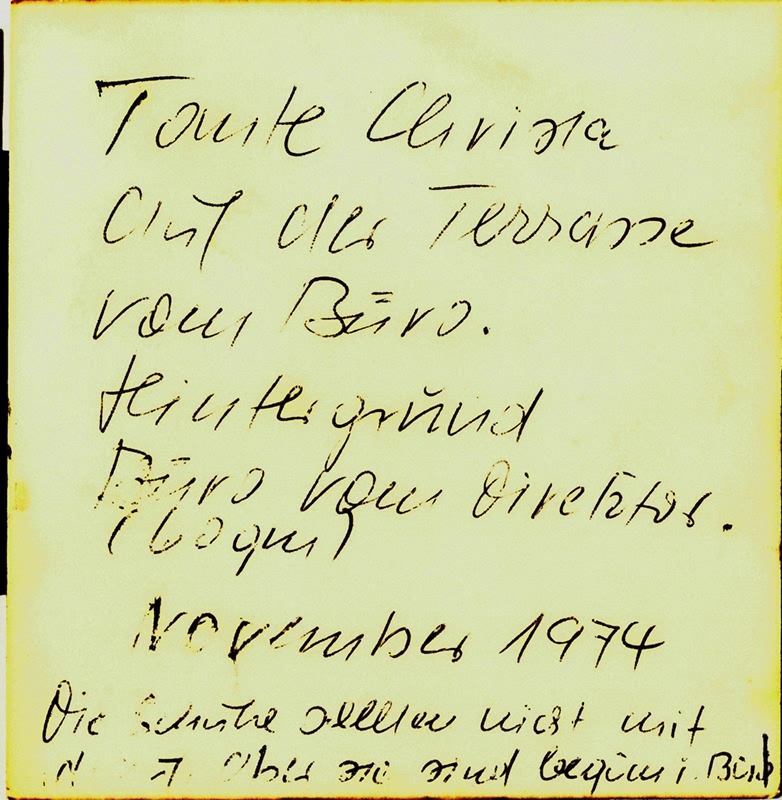 Tante Christa
auf der Terrasse
vom Büro.
Hintergrund
Büro vom Direktor.
(60qm)
November 1974
Die Schuhe sollten nicht mit
aber sie sind bequem i. Büro